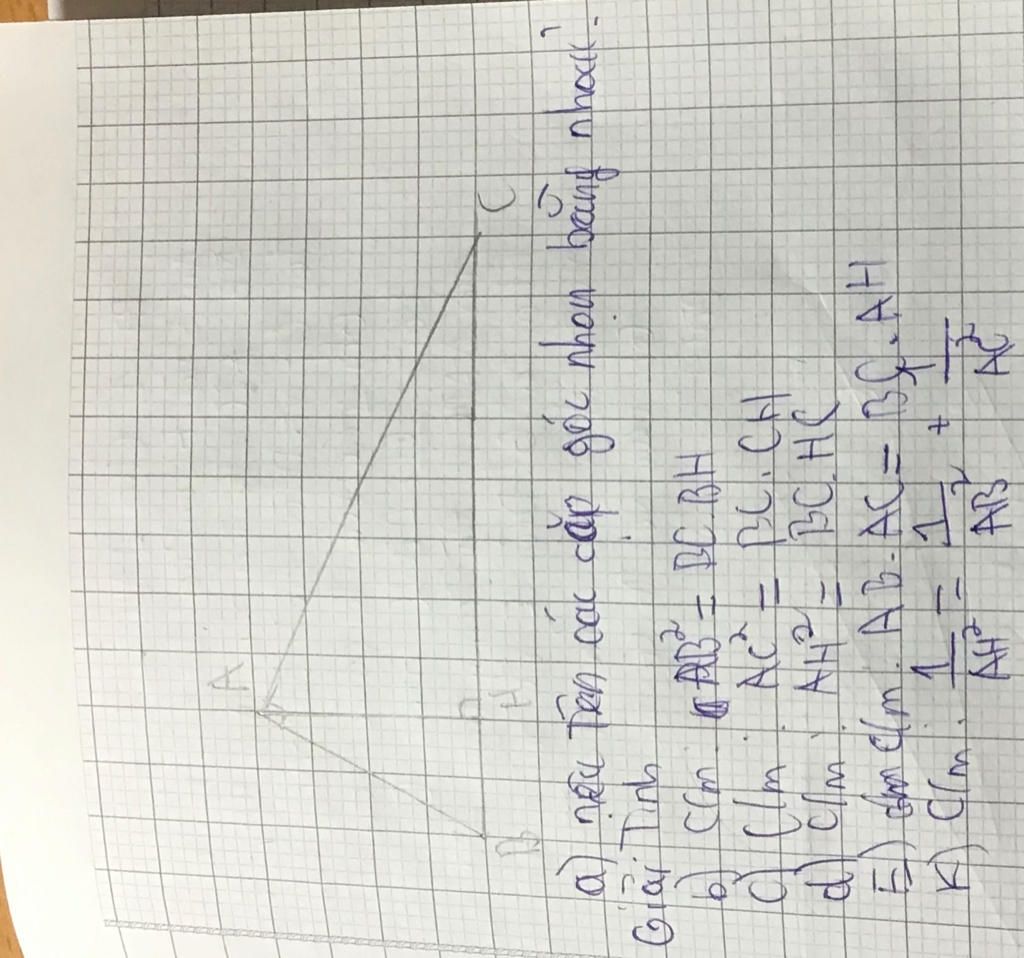 A
B
H
C
a) nêu Tên các cặp góc nhọn bằng nhau.
Giải Tình
b) C/m AB² = BC.BH
c) C/m. AC² = BC.CH
d) C/m. AH² = BC.HC
E) C/m. AB.AC = BC.AH
K) C/m. 1/AH² = 1/AB² + 1/AC²